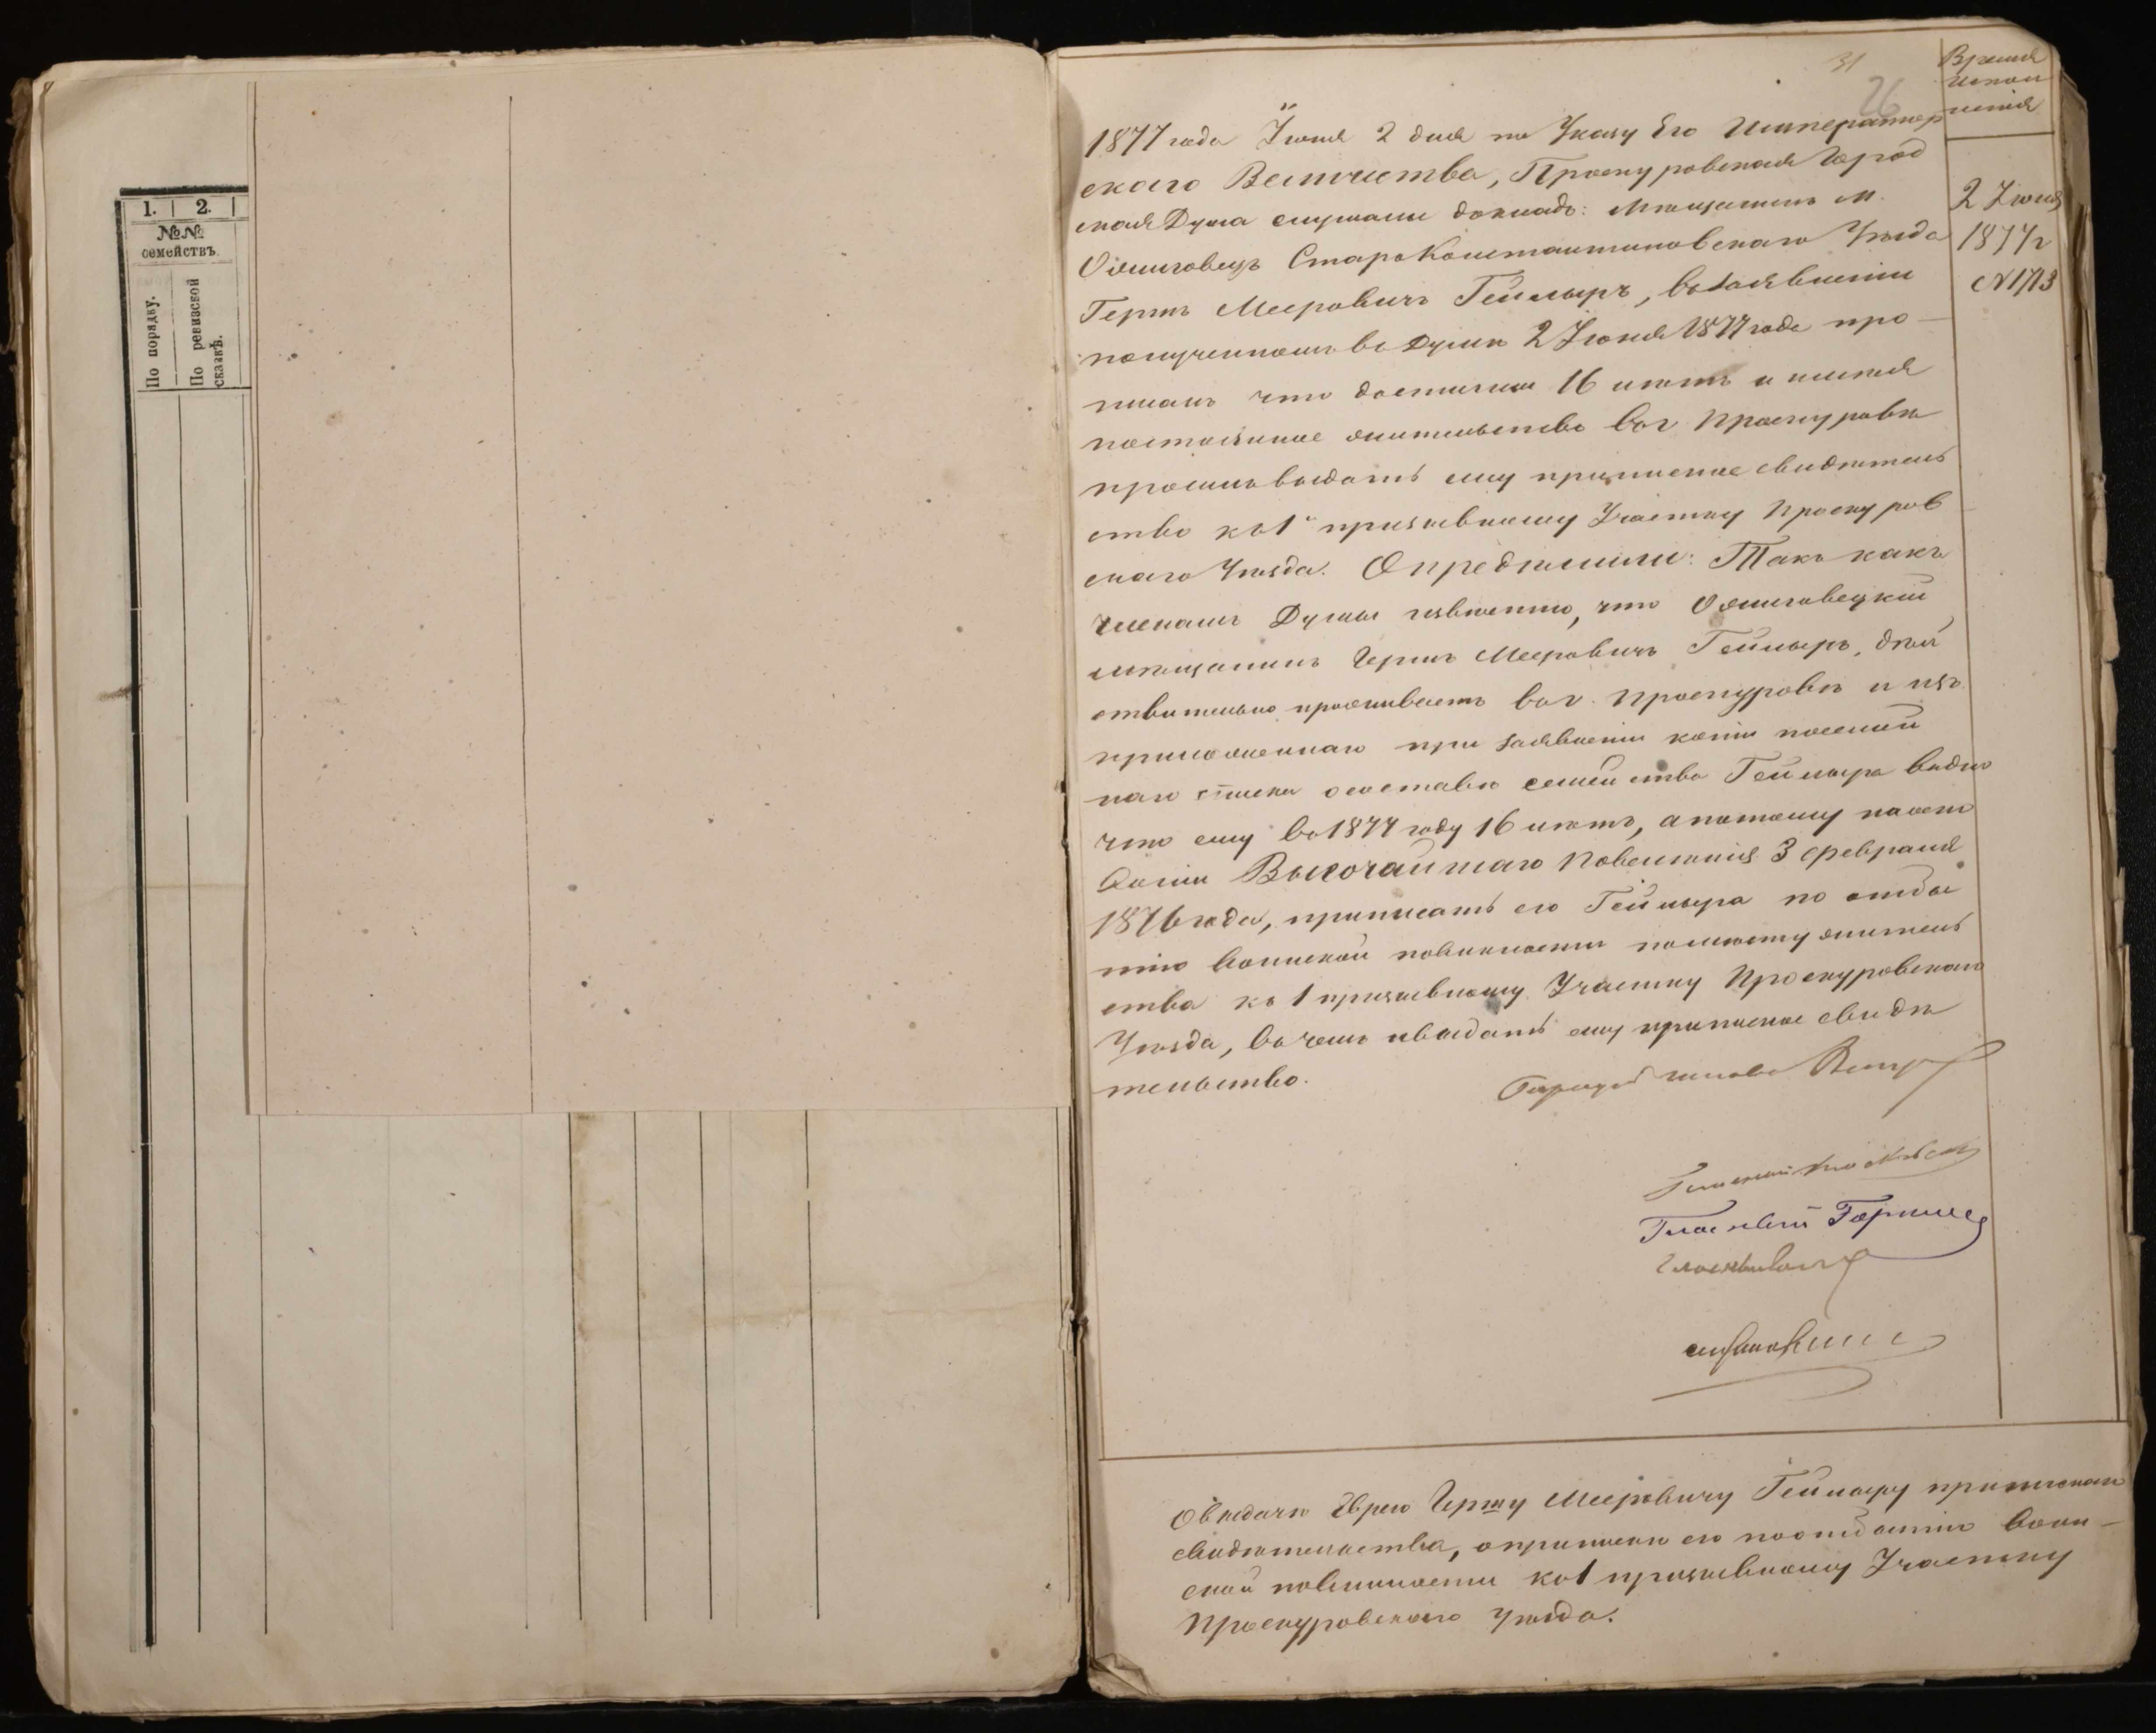 1. 2.
№№
семействъ.
По порядку.
По ревизской
сказкѣ.
31
26
Время
испол
ненія
1877 года Іюня 2 дня по Указу Его Император
скаго Величества, Проскуровская Город
ская Дума слушали докладъ: Мѣщанинъ м.
Ожиговецъ Староконстантиновскаго Уѣзда
Гершъ Мееровичъ Геймыръ, въ заявленіи
полученномъ въ Думѣ 2 Іюня 1877 года про
писалъ что достигши 16 лѣтъ и имѣя
постоянное жительство въ г. Проскуровѣ
просилъ выдать ему приписное свидѣтель
ство къ 1 призывному Участку Проскуров
скаго Уѣзда. Опредѣлили: Такъ какъ
членамъ Думы извѣстно, что Ожиговецкій
мѣщанинъ Гершъ Мееровичъ Геймыръ, дѣй
ствительно проживаетъ въ г. Проскуровѣ и изъ
приложеннаго при заявленіи копіи посемей
наго списка о составѣ семейства Геймыра видно
что ему въ 1877 году 16 лѣтъ, а потому на осно
ваніи Высочайшаго повелѣнія 3 февраля
1876 года, приписать его Геймыра по отбы
тію воинской повинности по мѣсту житель
ства къ 1 призывному Участку Проскуровскаго
Уѣзда, въ чемъ и выдать ему приписное свидѣ
тельство.
2 Іюня
1877 г
№ 1713
Городской голова
Гласный
Гласный
О выдачѣ Еврею Гершу Мееровичу Геймыру приписнаго
свидѣтельства, о припискѣ его по отбытію воин
ской повинности къ 1 призывному Участку
Проскуровскаго уѣзда.